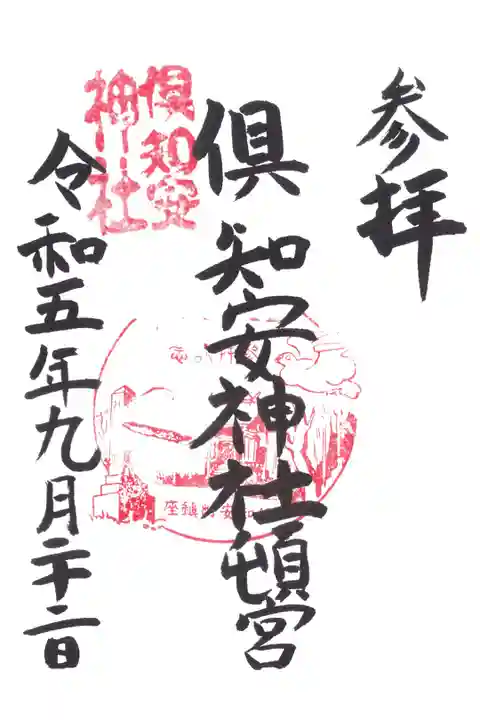 参拝
倶知安神社頓宮
倶知安
神社
令和五年九月二十二日